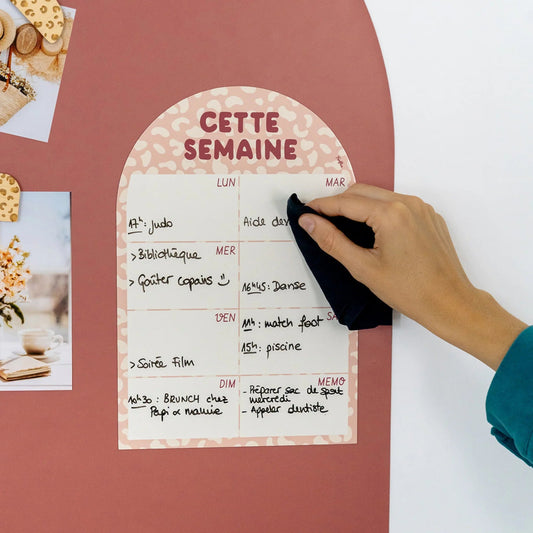 CETTE
SEMAINE
LUN
17h: Judo
MAR
Aide
MER
> Bibliothèque
> Goûter copains
16h45: Danse
VEN
> Soirée Film
11h: match foot
15h: piscine
DIM
10h30: BRUNCH chez
Papi & mamie
MEMO
- Préparer sac de sport
mercredi
- Appeler dentiste